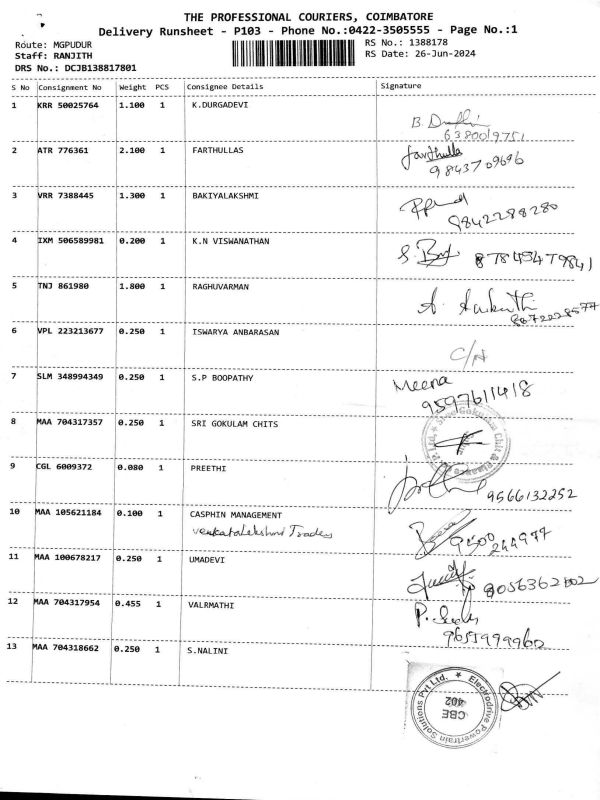 THE PROFESSIONAL COURIERS, COIMBATORE
Delivery Runsheet - P103 - Phone No.:0422-3505555 - Page No.:1
Route: MGPUDUR RS No.: 1388178
Staff: RANJITH RS Date: 26-Jun-2024
DRS No.: DCJB138817801
S No Consignment No Weight PCS Consignee Details Signature
1 KRR 50025764 1.100 1 K.DURGADEVI
6380019751
2 ATR 776361 2.100 1 FARTHULLAS farthulla
9843709696
3 VRR 7388445 1.300 1 BAKIYALAKSHMI
9842288280
4 IXM 506589981 0.200 1 K.N VISWANATHAN
5 TNJ 861980 1.800 1 RAGHUVARMAN
6 VPL 223213677 0.250 1 ISWARYA ANBARASAN
C/N
7 SLM 348994349 0.250 1 S.P BOOPATHY Meena
9597611418
8 MAA 704317357 0.250 1 SRI GOKULAM CHITS
9 CGL 6009372 0.080 1 PREETHI
9566132252
10 MAA 105621184 0.100 1 CASPHIN MANAGEMENT
Venkatalakshmi Traders
9500 244977
11 MAA 100678217 0.250 1 UMADEVI
8056362002
12 MAA 704317954 0.455 1 VALRMATHI
9659999960
13 MAA 704318662 0.250 1 S.NALINI
Electrodrive Powertrain Solutions Pvt Ltd.
CBE
402